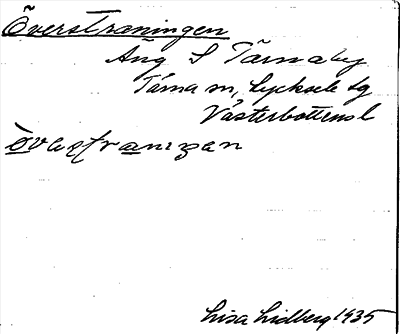 Överstraningen
Äng S Tärnaby
Tärna sn, Lycksele lg
Västerbottens l
òvaʂtranıŋan
Lisa Lidberg 1935